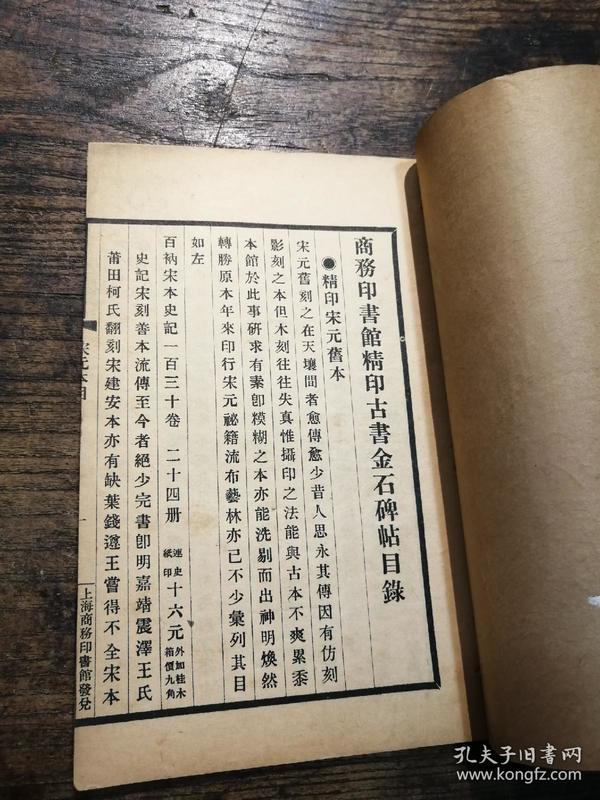 商務印書館精印古書金石碑帖目錄
●精印宋元舊本
宋元舊刻之在天壤間者愈傳愈少昔人思永其傳因有仿刻
影刻之本但木刻往往失真惟攝印之法能與古本不爽累黍
本館於此事研求有素卽模糊之本亦能洗剔而出神明煥然
轉勝原本年來印行宋元祕籍流布藝林亦已不少彙列其目
如左
百衲宋本史記一百三十卷 二十四册 連史紙印 十六元 外加桂木箱價九角
史記宋刻善本流傳至今者絕少完書卽明嘉靖震澤王氏
莆田柯氏翻刻宋建安本亦有缺葉錢遵王嘗得不全宋本
宋元本目
一
上海商務印書館發兌
孔夫子旧书网
www.kongfz.com